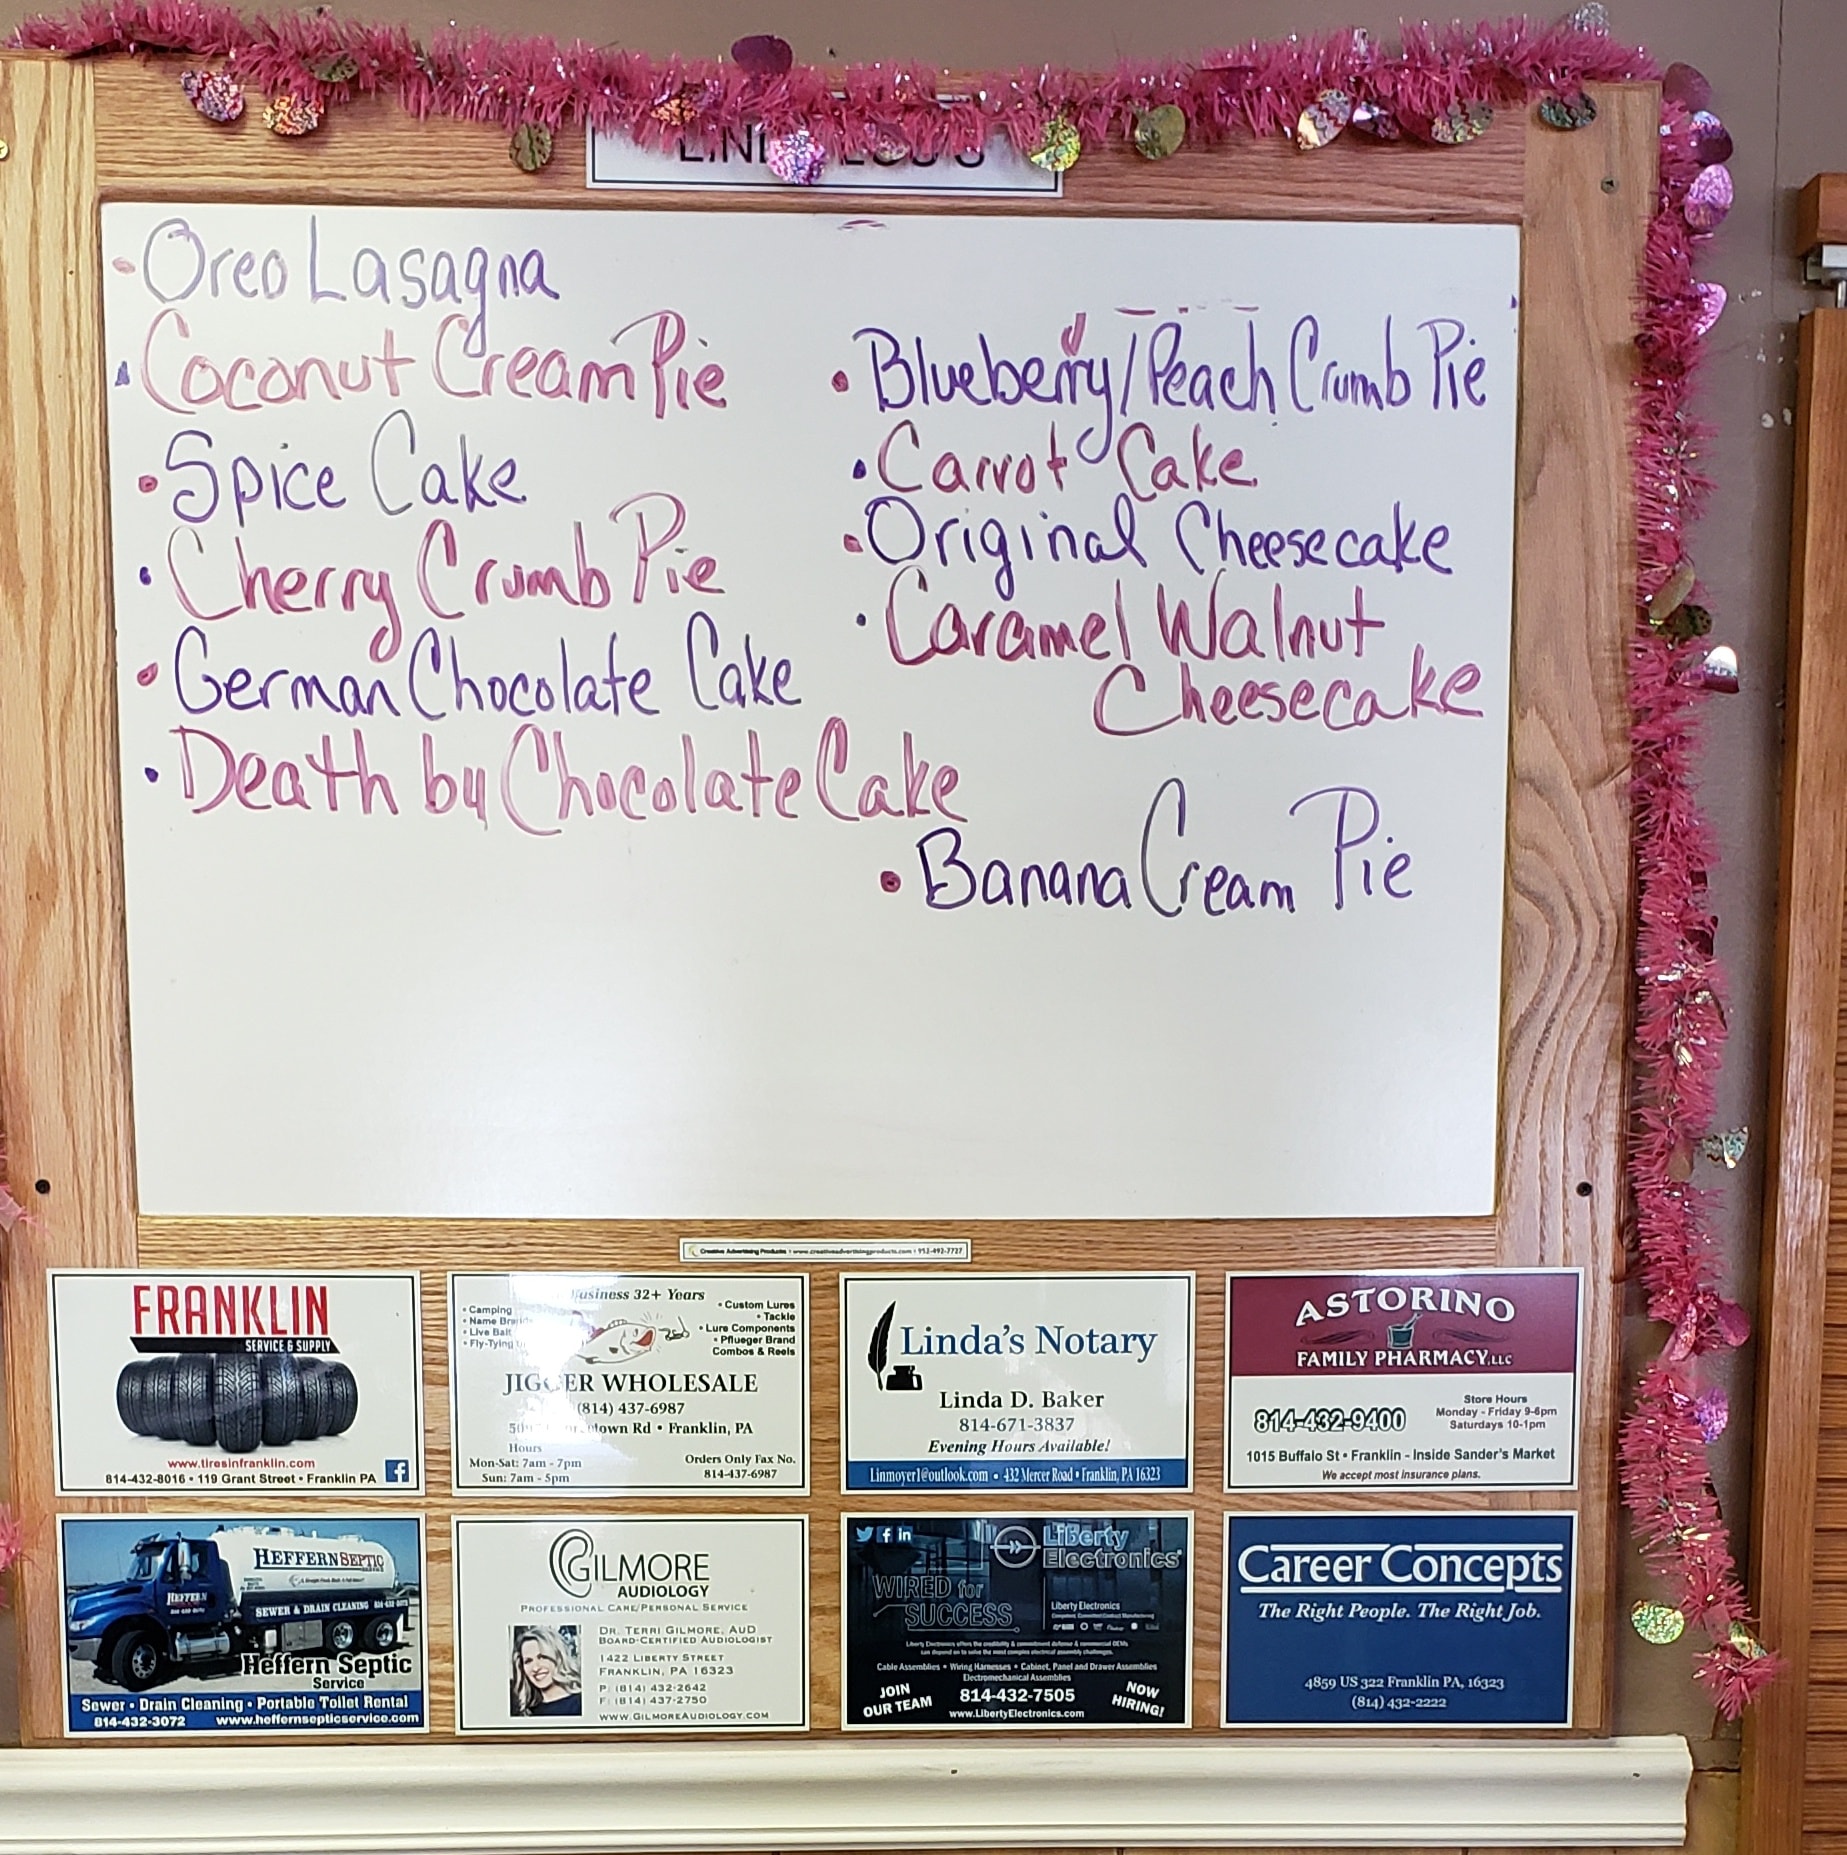 Oreo Lasagna
Coconut Cream Pie
Spice Cake
Cherry Crumb Pie
German Chocolate Cake
Death by Chocolate Cake
Blueberry/Peach Crumb Pie
Carrot Cake
Original Cheesecake
Caramel Walnut
Cheesecake
Banana Cream Pie
Creative Advertising Products • www.creativeadvertisingproducts.com • 952-492-7727
FRANKLIN
SERVICE & SUPPLY
www.tiresinfranklin.com
814-432-8016 • 119 Grant Street • Franklin PA
Business 32+ Years
• Camping
• Name
• Live Bait
• Fly-Tying
• Custom Lures
• Tackle
• Lure Components
• Pflueger Brand
Combos & Reels
JIGGER WHOLESALE
(814) 437-6987
Rd • Franklin, PA
Hours
Mon-Sat: 7am - 7pm
Sun: 7am - 5pm
Orders Only Fax No.
814-437-6987
Linda's Notary
Linda D. Baker
814-671-3837
Evening Hours Available!
Linmoyer1@outlook.com • 432 Mercer Road • Franklin, PA 16323
ASTORINO
FAMILY PHARMACY, LLC
814-432-9400
Store Hours
Monday - Friday 9-6pm
Saturdays 10-1pm
1015 Buffalo St • Franklin - Inside Sander's Market
We accept most insurance plans.
HEFFERN SEPTIC
SERVICE
HEFFERN
SEWER & DRAIN CLEANING 814-432-3072
Heffern Septic
Service
Sewer • Drain Cleaning • Portable Toilet Rental
814-432-3072 www.heffernsepticservice.com
GILMORE
AUDIOLOGY
PROFESSIONAL CARE/PERSONAL SERVICE
DR. TERRI GILMORE, AUD
BOARD-CERTIFIED AUDIOLOGIST
1422 LIBERTY STREET
FRANKLIN, PA 16323
P: (814) 432-2642
F: (814) 437-2750
WWW.GILMOREAUDIOLOGY.COM
Liberty
Electronics
WIRED for
SUCCESS
Liberty Electronics
Liberty Electronics offers the credibility & commitment defense & commercial OEMs
can depend on to solve the most complex electrical assembly challenges.
Cable Assemblies • Wiring Harnesses • Cabinet, Panel and Drawer Assemblies
Electromechanical Assemblies
JOIN
OUR TEAM
814-432-7505
www.LibertyElectronics.com
NOW
HIRING!
Career Concepts
The Right People. The Right Job.
4859 US 322 Franklin PA, 16323
(814) 432-2222